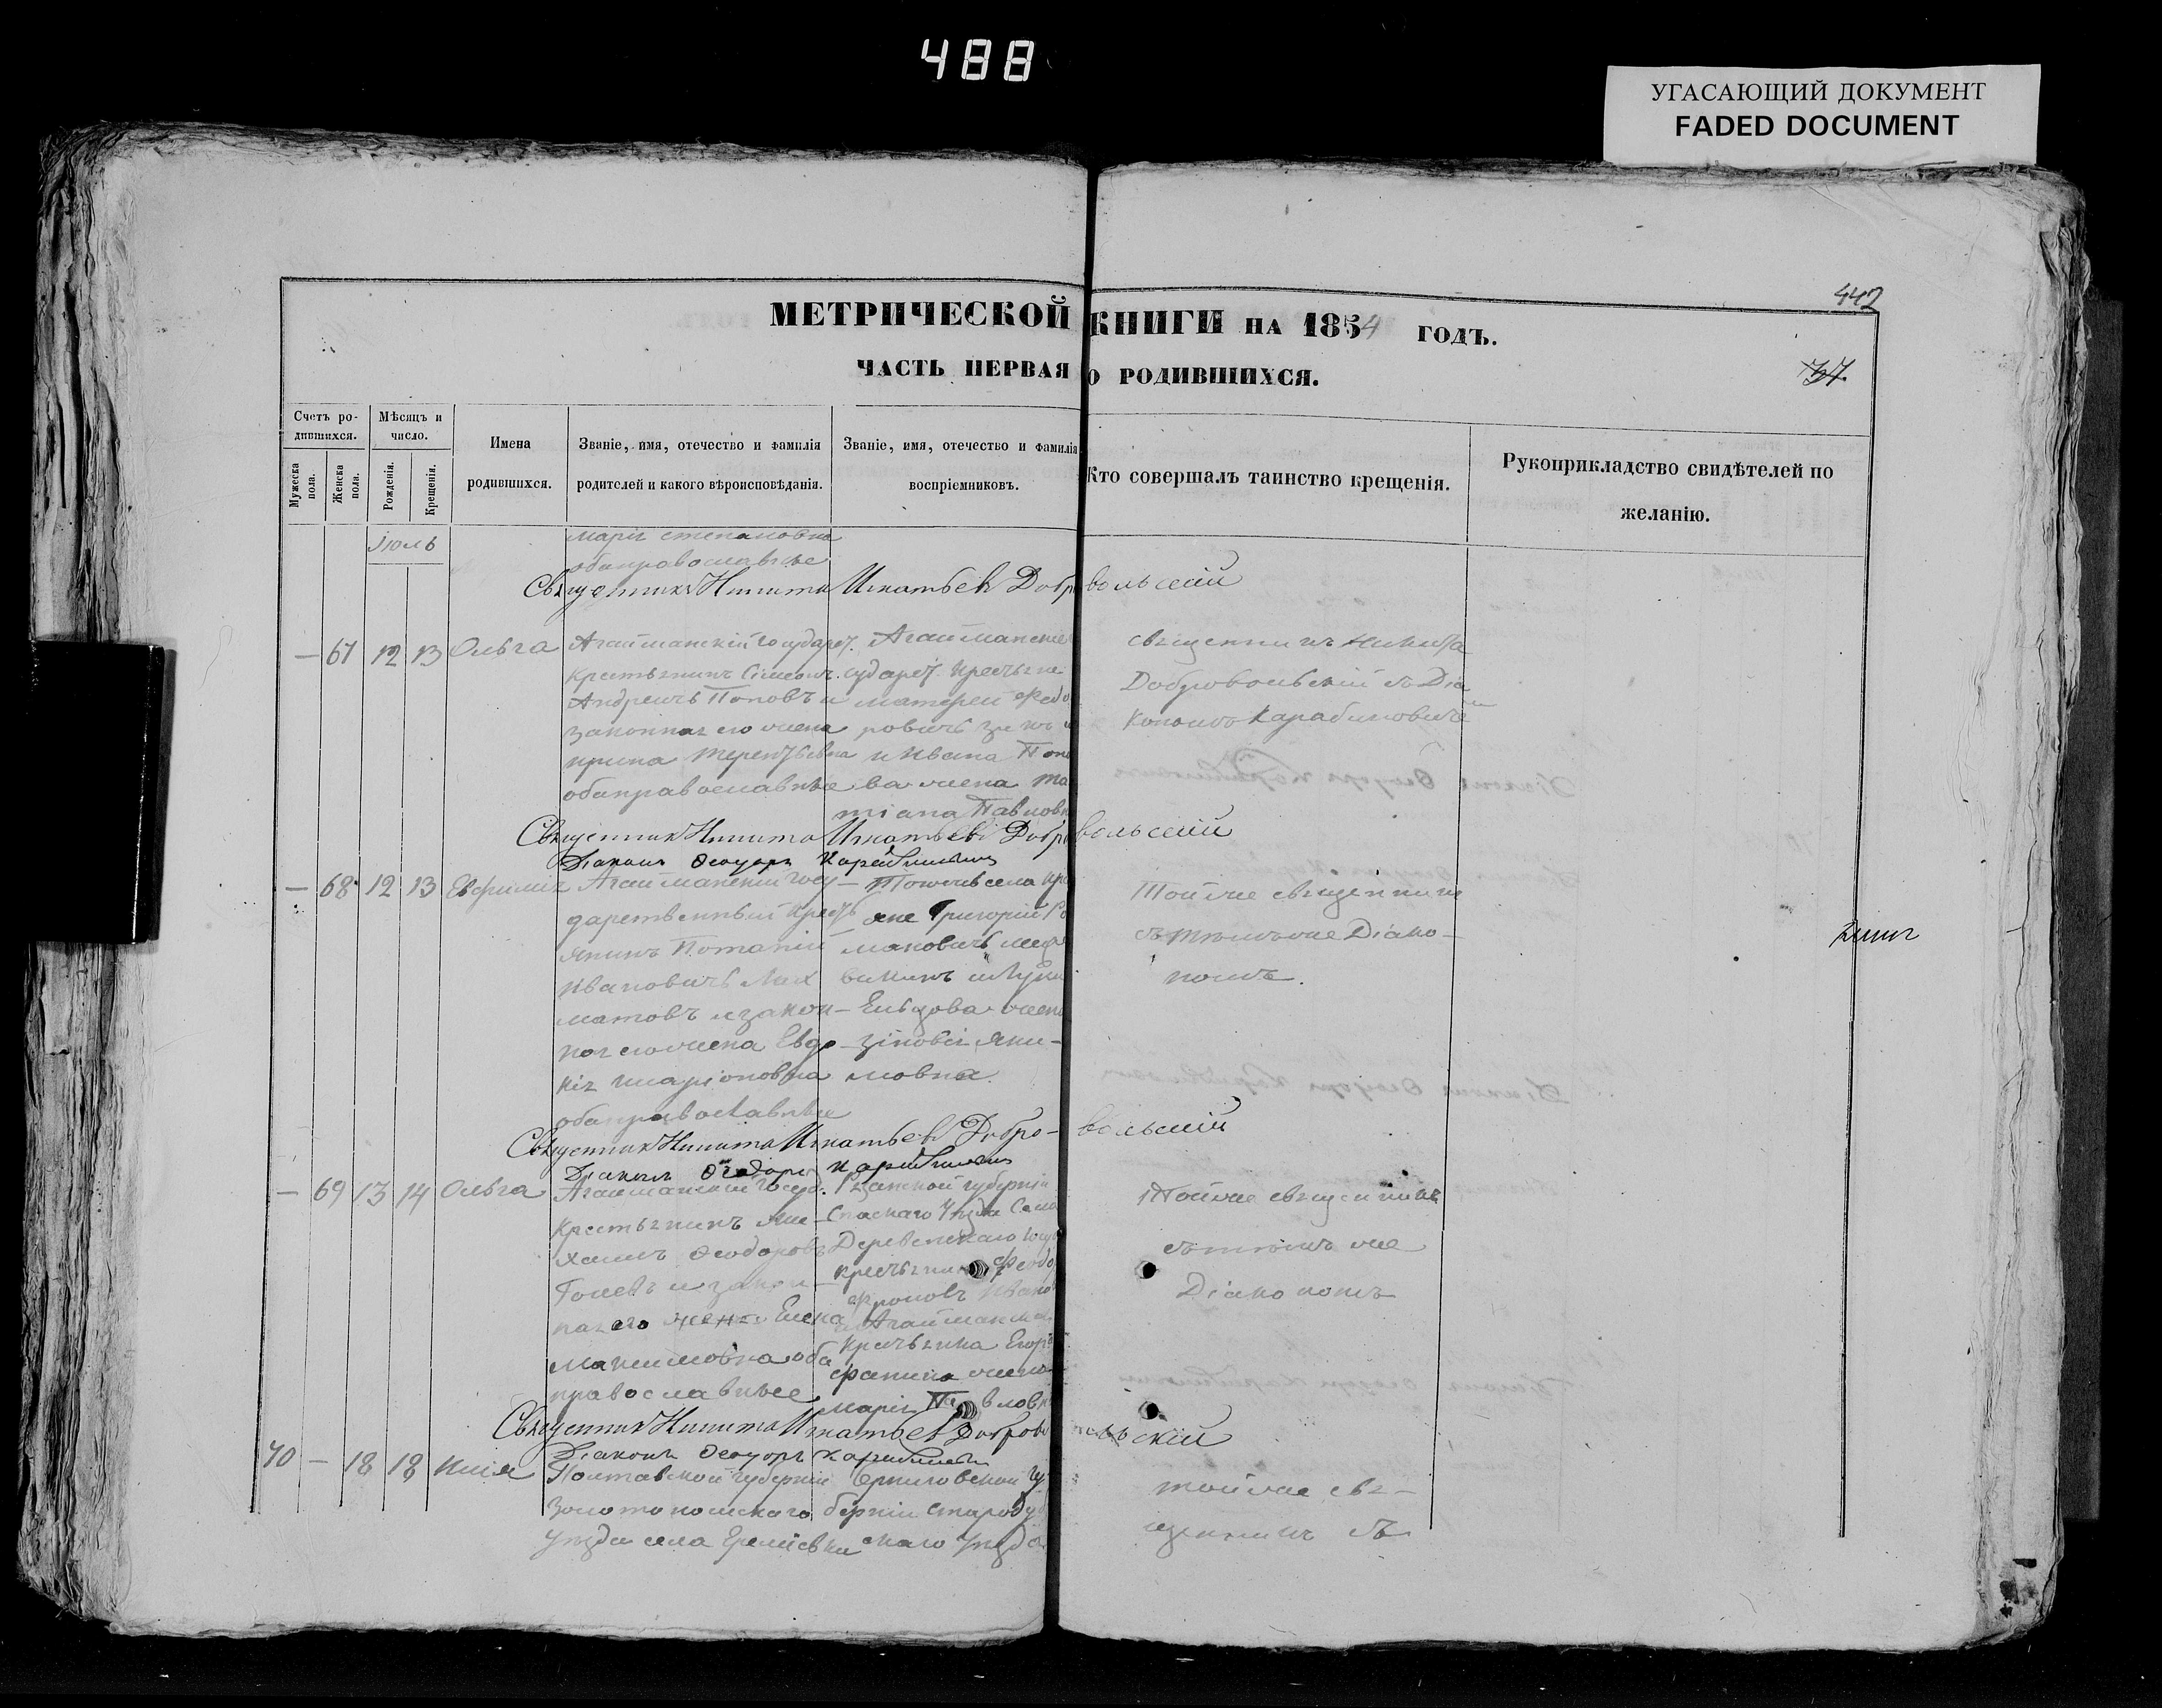 488
УГАСАЮЩИЙ ДОКУМЕНТ
FADED DOCUMENT
442
МЕТРИЧЕСКОЙ КНИГИ НА 1854 ГОДЪ.
ЧАСТЬ ПЕРВАЯ О РОДИВШИХСЯ.
Счетъ родившихся.
Мужеска пола.
Женска пола.
Мѣсяцъ и число.
Рожденія.
Крещенія.
Имена родившихся.
Званіе, имя, отечество и фамилія родителей и какого вѣроисповѣданія.
Званіе, имя, отечество и фамилія воспріемниковъ.
Кто совершалъ таинство крещенія.
Рукоприкладство свидѣтелей по желанію.
Іюль
Марія Степановна
оба православные
Священникъ Никита Игнатьевъ Добровольскій
— 67 12 13 Ольга
Агайманскій государ.
крестьянинъ Сімеонъ
Андреичъ Поповъ и
законная его жена
Ирина Терентьевна
оба православные
Агайманскіе
сударст. крестьяне
матфей Федо
ровичъ
и Ивана Попо
ва жена Та
тіана Павловн
священникъ Никита
Добровольскій съ Діа
кономъ Карабиновиче
Священникъ Никита Игнатьевъ Добровольскій
Діаконъ Ѳеодоръ Карабиновичъ
— 68 12 13 Евфимія
Агайманскій госу
дарственный крестья
янинъ Потапій
Ивановичъ Лах
матовъ и закон
ная его жена Евдо
кія Иларіоновна
оба православные
Тогожъ села кре
яне Григорій Ро
мановичъ
Ельцова жена
Зіновія Яки
мовна.
Тойже священникъ
съ тѣмъ же Діако
номъ.
Священникъ Никита Игнатьевъ Добровольскій
Діаконъ Ѳеодоръ Карабиновичъ
— 69 13 14 Ольга
Агайманскій госуд.
крестьянинъ Ми
хаилъ Ѳеодоровъ
и закон
ная его жена Елена
Максимовна оба
православные
Рязанской губерніи
Спаскаго Уѣзда Села
Деревенскаго госуд
крестьянинъ Федо
Фроловъ Ивано
и Агайманска
крестьянина Егора
Фанина жена
Марія Павловн
Тойже священникъ
съ тѣмъ же
Діакономъ
Священникъ Никита Игнатьевъ Добровольскій
Діаконъ Ѳеодоръ Карабиновичъ
70 — 18 18 Илія
Полтавской губерніи
Золотоношскаго
Уѣзда села Ереміевки
Черниговской гу
берніи Стародуб
скаго Уѣзда
тойже свя
щенникъ съ